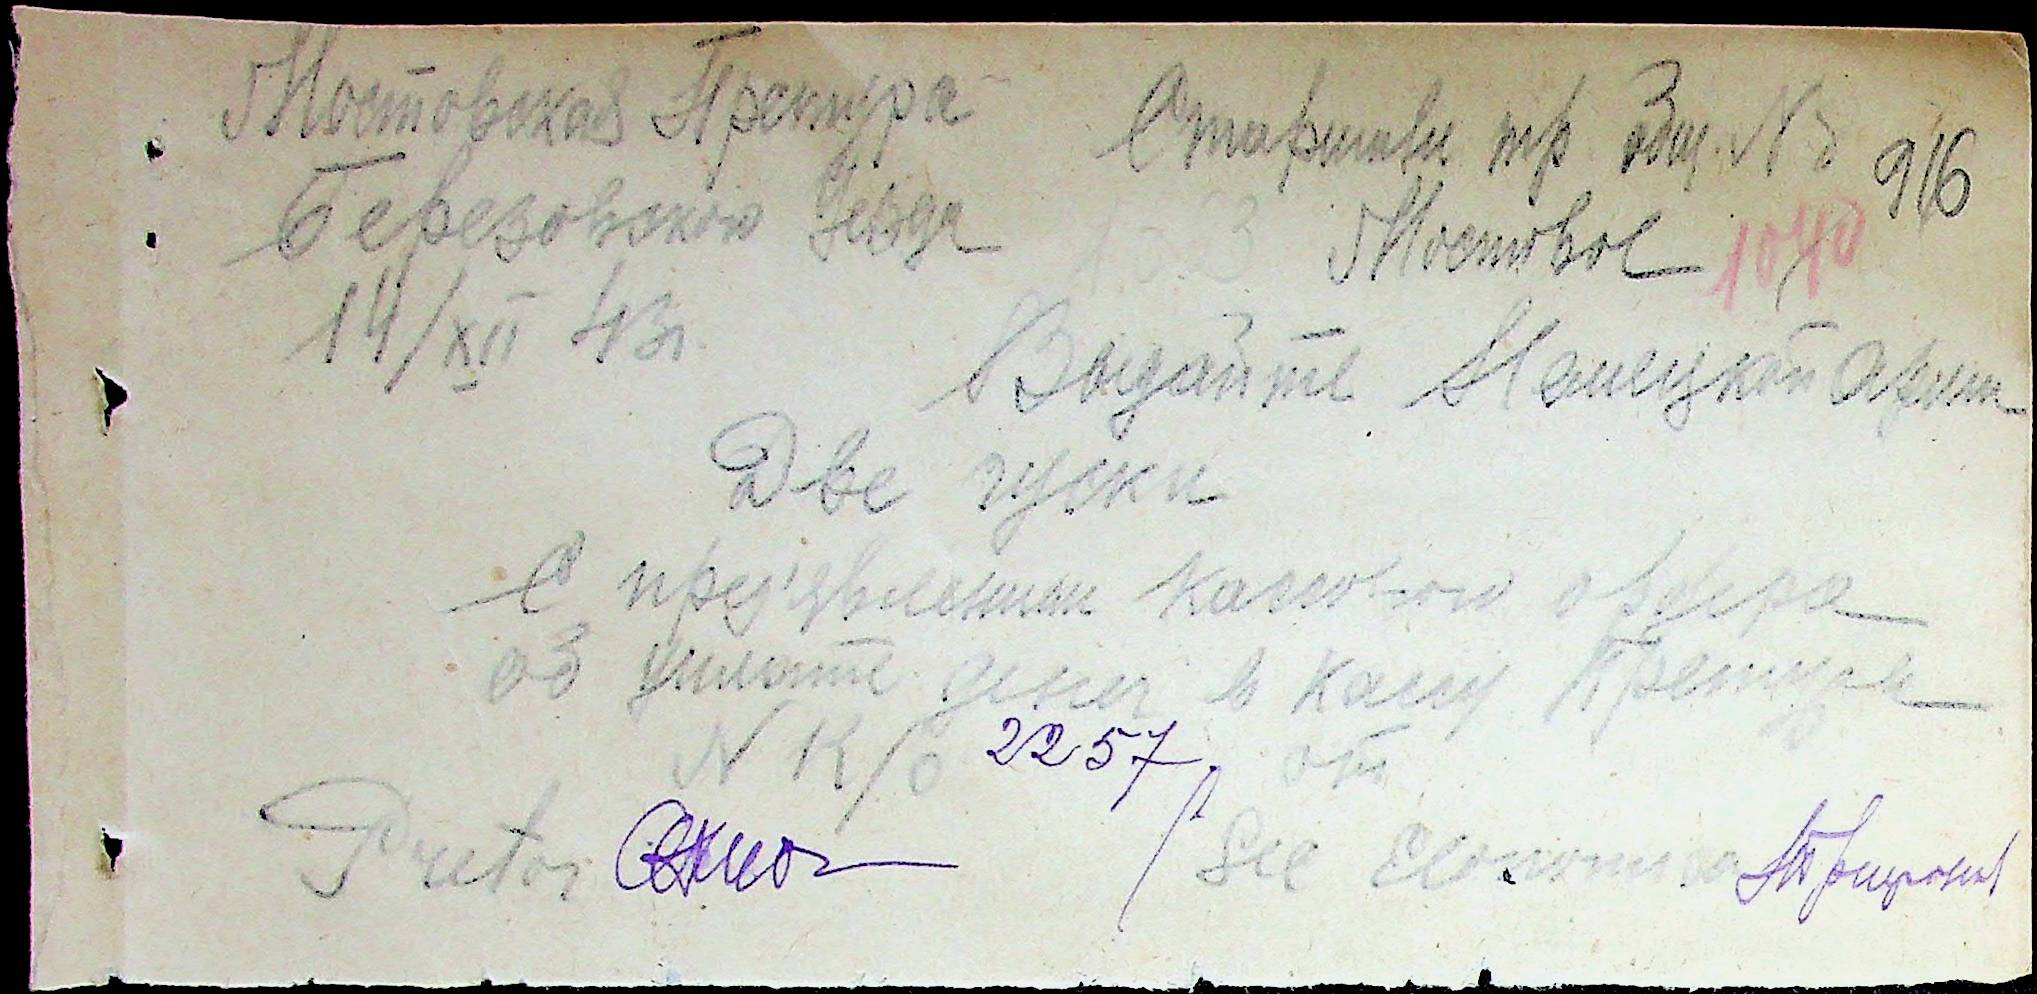 Мостовская Претура
Березовского уезда
14/XII 43г.
Старшине тр. общ. № 3
916
Мостовое
1040
Выдайте Немецкой армии
Две гуски
С пред'явлением кассового ордера
об уплате денег в кассу Претуры
N К/О 2257 от
Pretor
Sec Economica